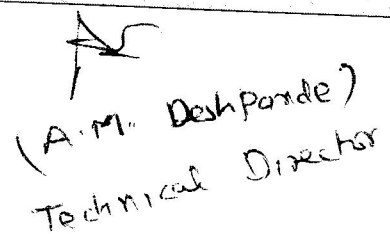 (A.M. Deshpande)
Technical Director